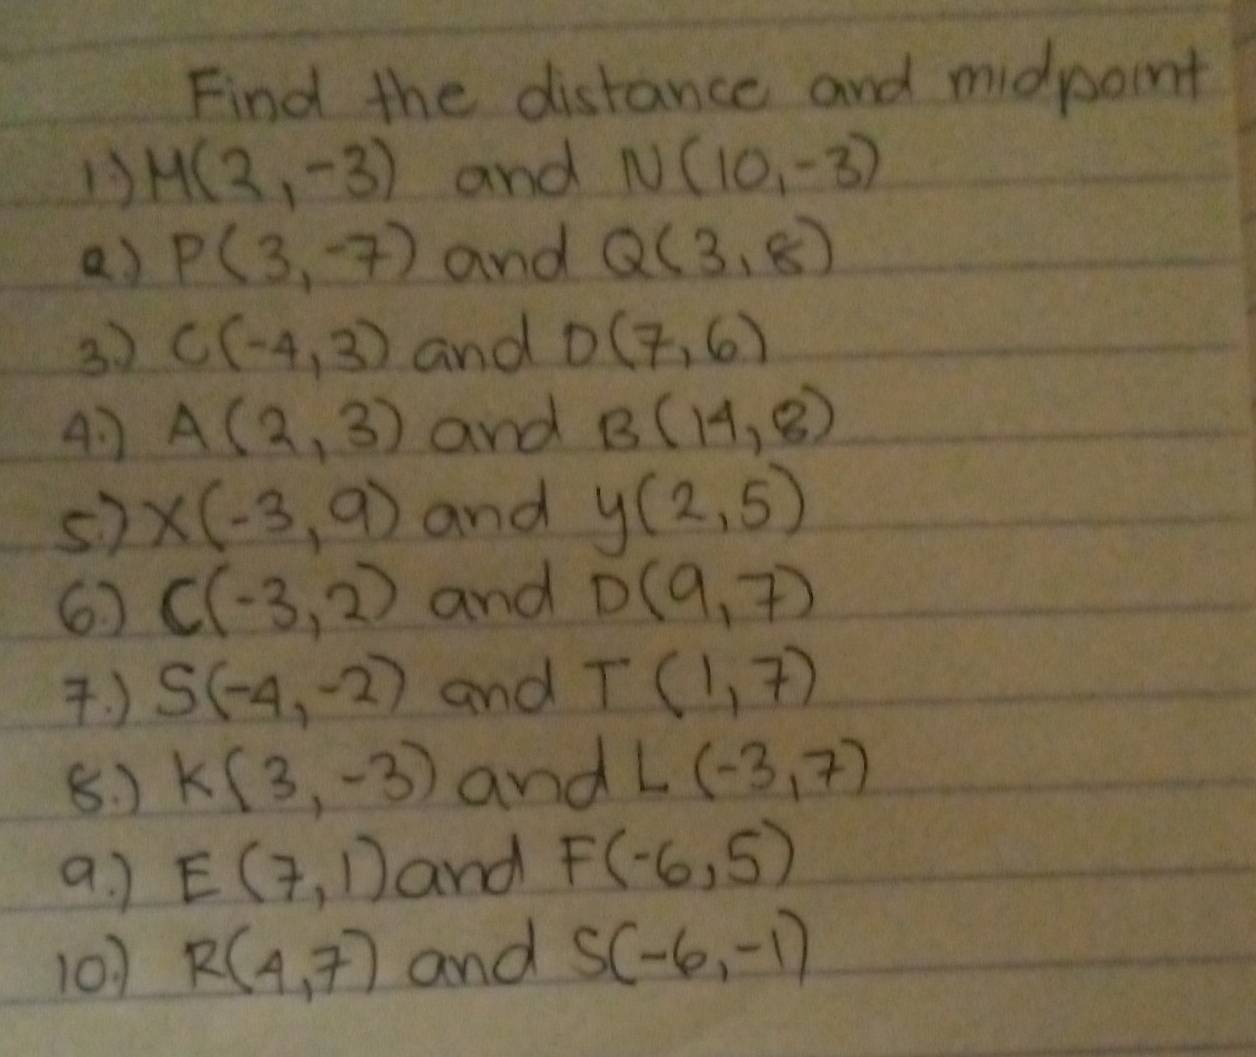 Find the distance and midpoint
1.) M(2,-3) and N(10,-3)
2.) P(3,-7) and Q(3,8)
3.) C(-4,3) and D(7,6)
4.) A(2,3) and B(14,8)
5.) X(-3,9) and y(2,5)
6.) C(-3,2) and D(9,7)
7.) S(-4,-2) and T(1,7)
8.) K(3,-3) and L(-3,7)
9.) E(7,1) and F(-6,5)
10.) R(4,7) and S(-6,-1)